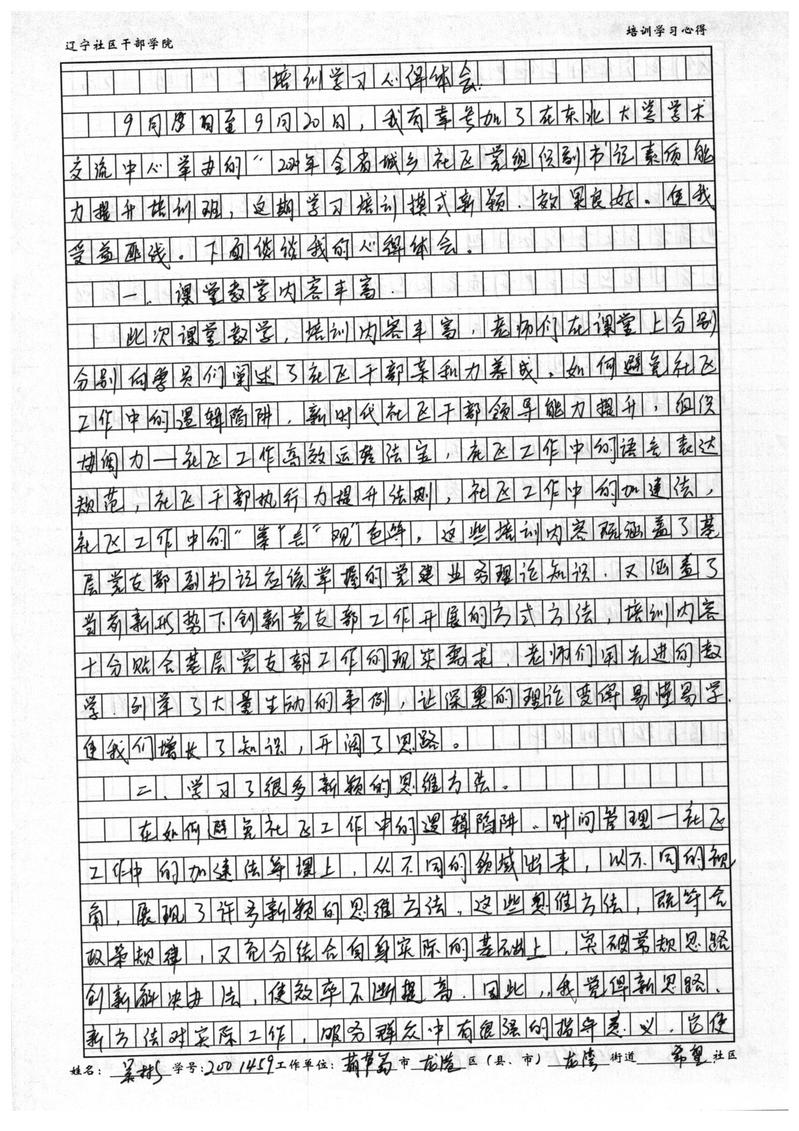 辽宁社区干部学院 培训学习心得
培训学习心得体会
9月 日至9月20日，我有幸参加了在东北大学学术
交流中心举办的“ 年全省城乡社区党组织副书记素质能
力提升培训班，这期学习培训模式新颖、效果良好。使我
受益匪浅。下面谈谈我的心得体会。
一、课堂教学内容丰富．
此次课堂教学，培训内容丰富，老师们在课堂上分别
分别向学员们阐述了社区干部亲和力养成、如何避免社区
工作中的逻辑陷阱、新时代社区干部领导能力提升，组织
协调力一社区工作高效运转法宝，社区工作中的语言表达
规范，社区干部执行力提升法则，社区工作中的加速法，
社区工作中的“ ” 等，这些培训内容既涵盖了基
层党支部副书记应该掌握的党建业务理论知识，又涵盖了
当前新形势下创新党支部工作开展的方式方法，培训内容
十分贴合基层党支部工作的现实需求，老师们用先进的教
学，列举了大量生动的案例，让深奥的理论变得易懂易学，
使我们增长了知识，开阔了思路。
二、学习了很多新颖的思维方法。
在如何避免社区工作中的逻辑陷阱、时间管理一社区
工作中的加速法等课上，从不同的领域出来，以不同的视
角，展现了许多新颖的思维方法，这些思维方法，既符合
政策规律，又充分结合自身实际的基础上，突破常规思路
创新解决办法，使效率不断提高．因此，我觉得新思路、
新方法对实际工作，服务群众中有很强的指导意义，它使
姓名： 学号：2001459工作单位：葫芦岛市 龙港 区（县、市） 龙湾 街道 希望 社区